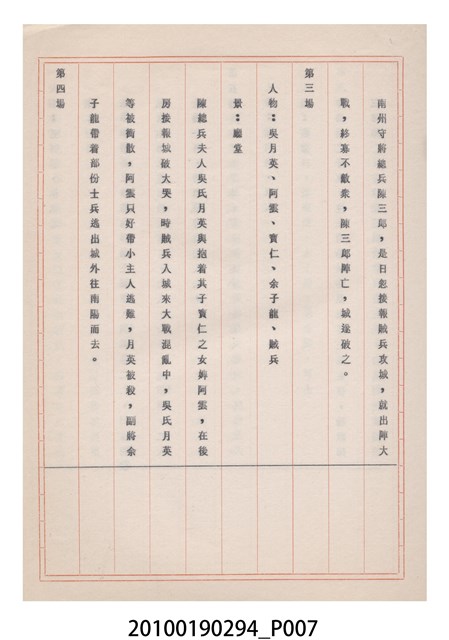 南州守將總兵陳三郎，是日忽接報賊兵攻城，就出陣大
戰，終寡不敵衆，陳三郎陣亡，城遂破之。
第三場
人物：吳月英、阿雲、寶仁、余子龍、賊兵
景：廳堂
陳總兵夫人吳氏月英與抱着其子寶仁之女婢阿雲，在後
房接報城破大哭，時賊兵入城來大戰混亂中，吳氏月英
等被衝散，阿雲只好帶小主人逃難，月英被殺，副將余
子龍帶着部份士兵逃出城外往南陽而去。
第四場
20100190294_P007